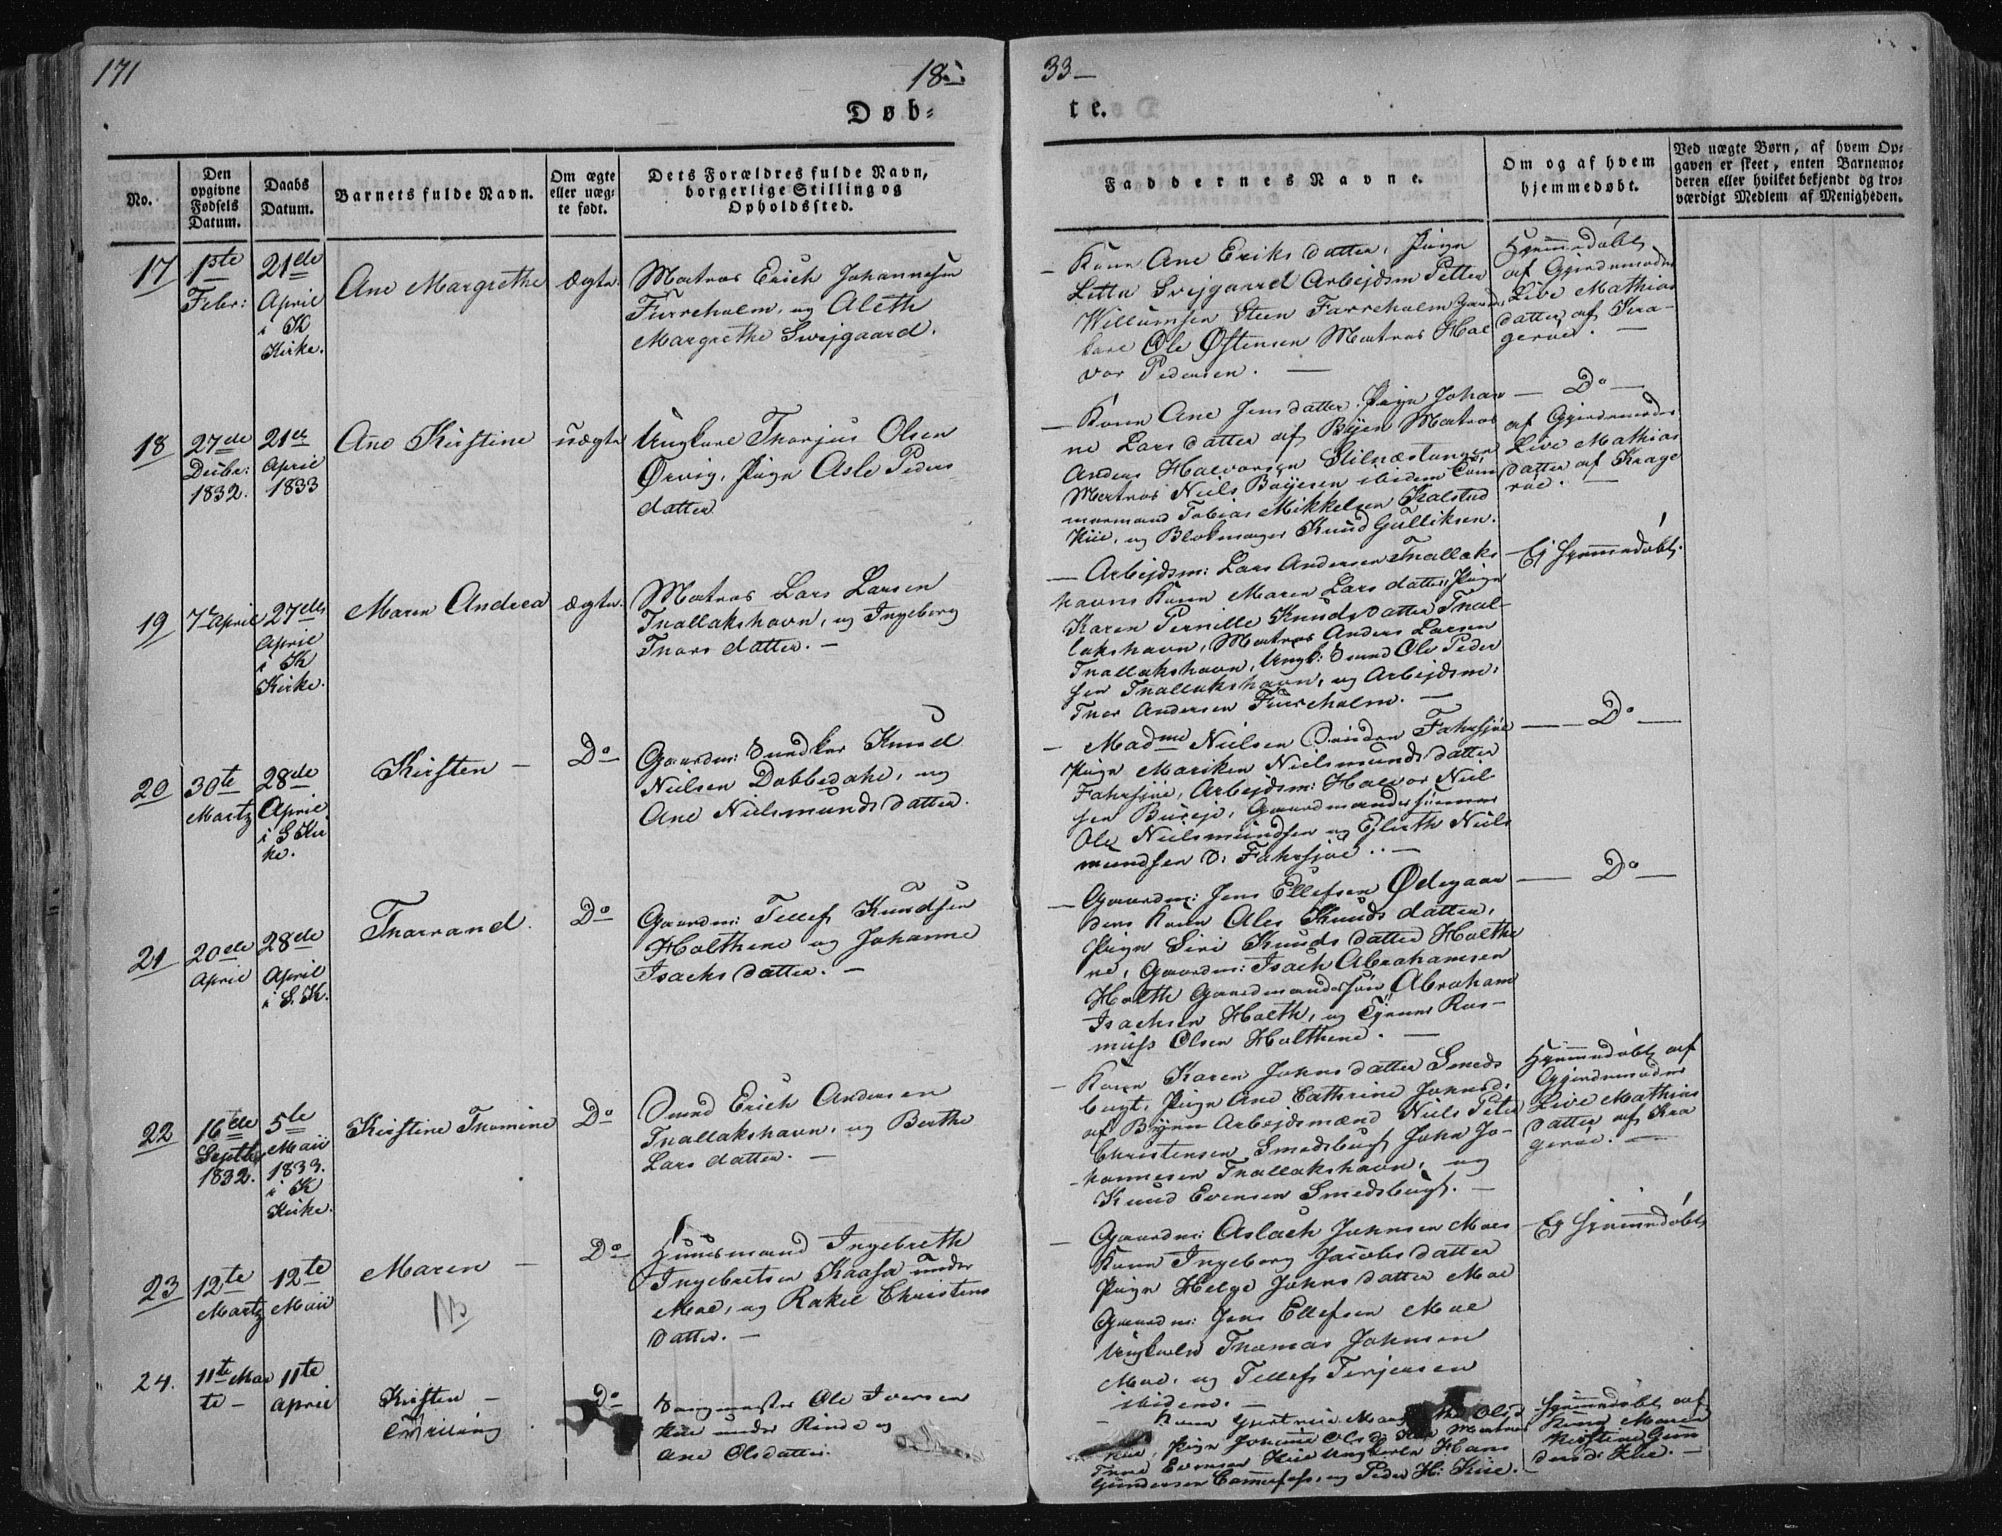 171
18
33
Døb-
te.
No.
Den opgivne Fødsels Datum.
Daabs Datum.
Barnets fulde Navn.
Om ægte eller uæg- te født.
Dets Forældres fulde Navn, borgerlige Stilling og Opholdssted.
Faddernes Navne.
Om og af hvem hjemmedøbt.
Ved uægte Børn, af hvem Op-
gaven er skeet, enten Barnemo-
deren eller hvilket bekjendt og tro-
værdigt Medlem af Menigheden.
17
1ste
Febr:
21de
April
i K
Kirke.
Ane Margrethe
ægte
Matros Erich Johannesen
Furreholm, og Aleth
Margrethe Svejgaard.
Kone Ane Eriks datter, Pige
Svejgaard Arbejdsm Petter
Willumsen Steen Farreholm
Ole Østensen Matros Hal
vor Pedersen.
Hjemmedøbt
af Gjordemoder
Live Mathias
datter af Kra-
gerøe.
18
27de
Decbr:
1832.
21de
April
1833
Ane Kirstine
uægte
Ungkare Thorjus Olsen
Ørvig, Pige Asle Peders
datter
Kone Ane Jens datter. Pige Johan
ne Lars datter af Byen Matros
Anders Halvorsen Stilnæstangen
Matros Niels Bøyesen ibidem Tøm
mermand Tobias Mikkelsen Kalstad
Kiie, og Blokmager Knud Gulliksen.
Do
af Gjordemoder
Live Mathias
datter af Krage
røe.
19
7de April
27de
April
i K
Kirke.
Maren Andrea
ægte.
Matros Lars Larsen
Taallakshavn, og Ingeborg
Tours datter.
Arbejdsm: Lars Andersen Taallaks
havns Kone Maren Lars datter, Pige
Karen Pernille Knuds datter Taal-
lakshavn, Matros Anders Larsen
Taallakshavn, Ungk: Svend Ole Peder
sen Taallakshavn, og Arbejdsm:
Andersen Furreholm.
Ej hjemmedøbt.
20
30te
Martz
28de
April
i S Kir
ke.
Kirsten
Do
Gaardm: Knud
Nielsen Dobbedahl, og
Ane Nielsmunds datter.
Madme Nielsen Fahrsjøe
Pige Mariken Nielsmunds datter
Fahrsjøe, Arbejdsm: Halvor Niel
sen Buøje, Gaardmandssønnerne
Ole Nielsmundsen og Ejlerth Niels
mundsen S: Fahrsjøe.
Do
21
20de
April
28de
April
i S. K.
Thorrand.
Do
Gaardm: Tellef Knudsen
Holthene og Johanne
Isachs datter.
Gaardm: Jens Ellefsen Ødegaar
dens Kone Ales Knuds datter,
Pige Siri Knuds datter Holthe
ne, Gaardm: Isach Abrahamsen
Holth Gaardmandssøn Abraham
Isachsen Holth, og Tjener Ras-
muss Olsen Holthene.
Do
22
16de
Septbr
1832.
5te
Maii
1833.
i K
Kirke.
Kirstine Thomine
Do
Smed Erich Andersen
Taallakshavn, og Berthe
Lars datter.
Kone Karen Johns datter Smeds
bugt, Pige Ane Cathrine Johnsd:
af Byen Arbejdsmænd Niels Peter
Christensen Smedsbugt John Jo-
hannesen Taallakshavn, og
Knud Evensen Smedsbugt.
Hjemmedøbt af
Gjordemoder
Live Mathias
datter af Kra
gerøe.
23
12te
Martz
12te
Maii
Maren
NB
Do
Huusmand Ingebreth
Ingebretsen Kaasa under
Moe, og Rakel Christens
datter.
Gaardm: Aslach Johnsen Moes
Kone Ingeborg Jacobs datter
Pige Helge Johns datter Moe
Gaardm: Jens Ellefsen Moe
Ungkarl Thomas Johnsen
Moe, og Tellef Terjersen
ibidem.
Ej hjemmedøbt
24.
11te Mar
te
11te
April
Kirsten
Tvilling
Do
Ole Iversen
Kiie under Rinde og
Ane Olsdatter.
Kone Olsd
Kiie, Pige Johanne Olsd Kiie Matros
Evensen Kiie Ungkarl Hans
Gundersen og Peder H: Kiie.
Hjemmedøbt af
Kone Maren
Kirstine Gun
dersd: Kiie.